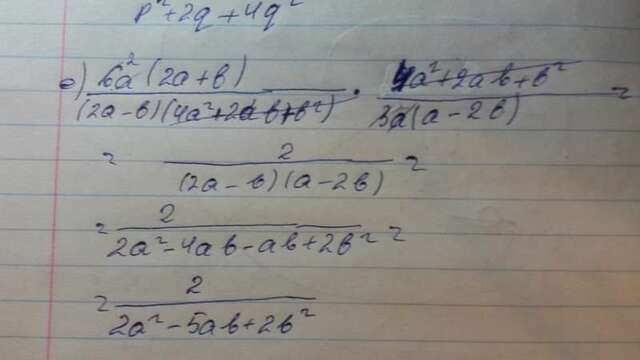 p²+2q+4q²
e) 6a²(2a+b) / (2a-b)(4a²+2ab+b²) · 4a²+2ab+b² / 3a(a-2b) =
= 2 / (2a-b)(a-2b) =
= 2 / 2a²-4ab-ab+2b² =
= 2 / 2a²-5ab+2b²